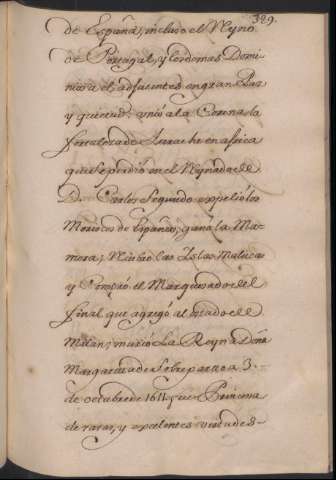 329.
de España, incluso el Reyno
de Portugal, y los demas Domi-
nios a el adjacentes en gran Paz
y quietud; unió a la Corona la
fortaleza de Larache en africa
que se perdió en el Reynado de
D. Carlos Segundo expelió los
Moriscos de España, ganó la Ma-
mora; las Islas Malucas
y Compró el Marquesado del
final que agregó al estado de
Milan; murió La Reyna Dña
Margarita de Sobreparto a 3.
de octubre de 1611 fue Princesa
de raras, y excelentes virtudes-